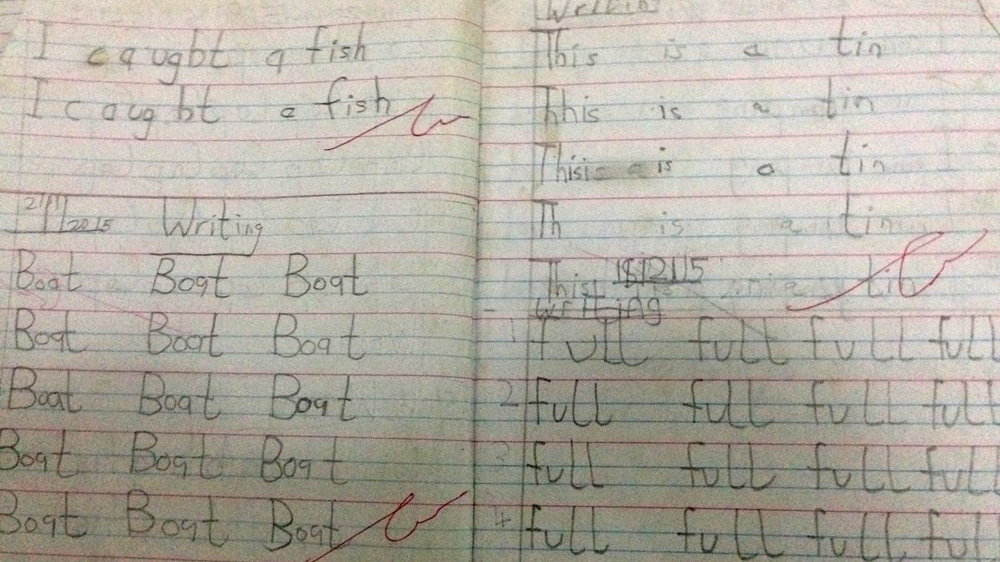 I caught a fish
I caught a fish
Writing
Boat Boat Boat
Boat Boat Boat
Boat Boat Boat
Boat Boat Boat
Boat Boat Boat
Writing
This is a tin
Thhis is a tin
Thisi is a tin
Th is a tin
This a tin
18/2/15
writing
1 full full full full
2 full full full full
3 full full full full
4 full full full full